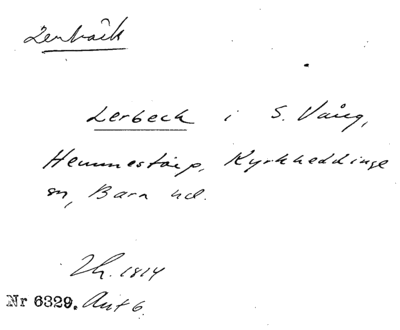 Lerbäck
Lerbeck i S. Vång,
Hemmestorp, Kyrkheddinge
sn, Bara hd.
Lh. 1814
Nr 6329. Akt 6.